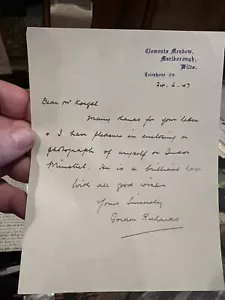 Clements Meadow,
Marlborough,
Wilts.
Telephone 28
24. 6. 47
Dear Mr
Many thanks for your letter
& I have pleasure in enclosing a
photograph of myself on Tudor
Minstrel. He is a brilliant horse
With all good wishes
Yours Sincerely
Gordon Richards